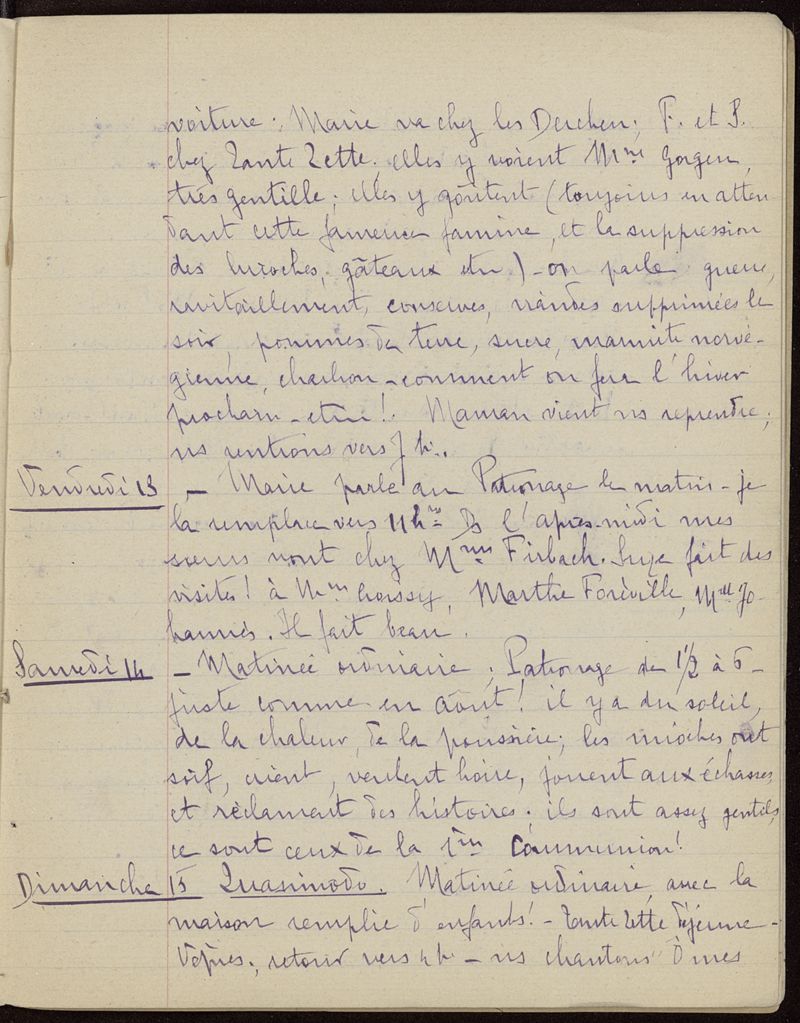 voiture. Marie va chez les Derchen; F. et S.
chez Tante Zette; elles y voient Mme Gorgeu,
très gentille; elles y goûtent (toujours en atten
dant cette fameuse famine, et la suppression
des brioches, gâteaux etc) - on parle guerre,
ravitaillement, conserves, viandes supprimées le
soir, pommes de terre, sucre, marmite norvé-
gienne, charbon - comment on fera l'hiver
prochain - etc! Maman vient ns reprendre;
ns rentrons vers 7 h..
Vendredi 13 - Marie parle au Patronage le matin - je
la remplace vers 11 h l'après-midi mes
sœurs vont chez Mmes Firbach. Suze fait des
visites! à Mme Marthe Foréville, Mell Jo-
hannès. Il fait beau.
Samedi 14 - Matinée ordinaire; Patronage de 1 1/2 à 6 -
juste comme en août! il y a du soleil,
de la chaleur, de la poussière; les mioches ont
soif, crient, veulent boire, jouent aux échasses,
et réclament des histoires; ils sont assez gentils,
ce sont ceux de la 1ère Communion!
Dimanche 15 Quasimodo. Matinée ordinaire, avec la
maison remplie d'enfants! - Tante Zette déjeune -
Vêpres; retour vers 4 h - ns chantons Ô mes